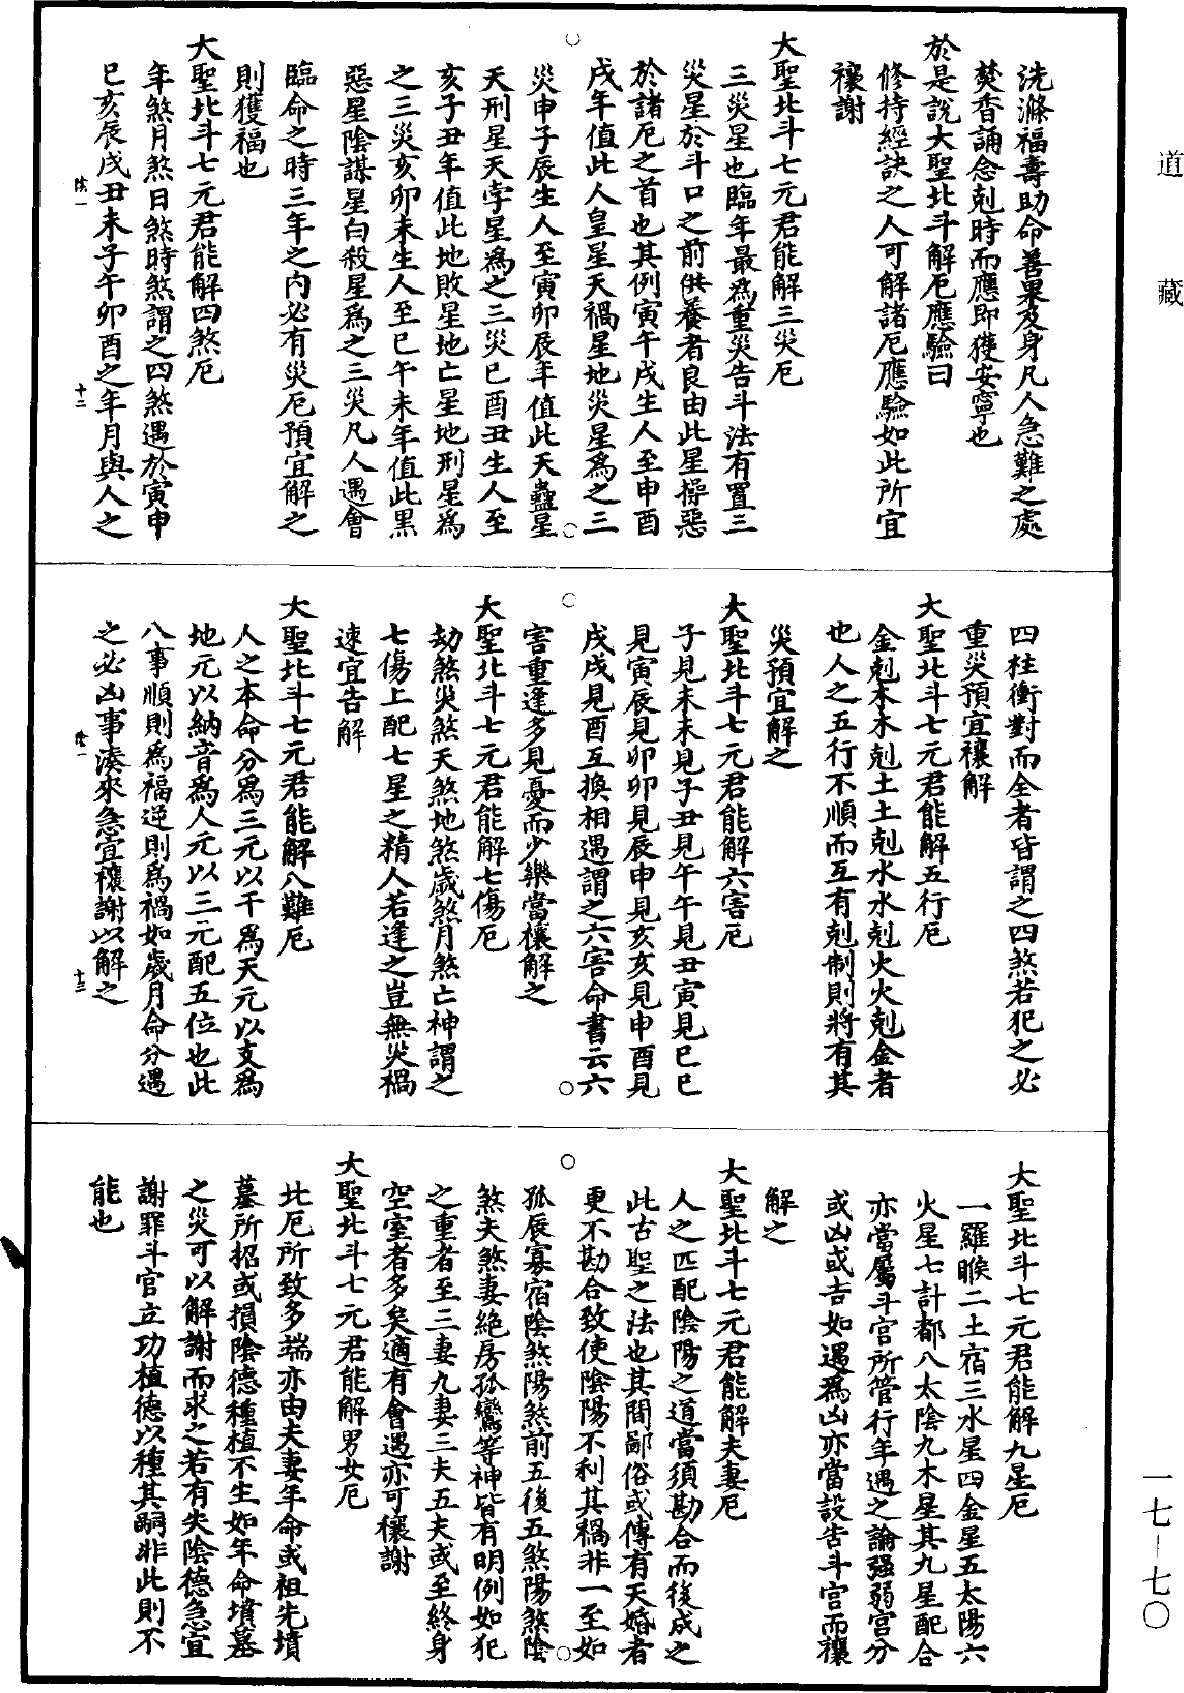 道藏
洗滌福壽助命善果及身凡人急難之處
焚香誦念剋時而應即獲安寧也
於是說大聖北斗解厄應驗曰
修持經訣之人可解諸厄應驗如此所宜
禳謝
大聖北斗七元君能解三災厄
三災星也臨年最為重災告斗法有置三
災星於斗口之前供養者良由此星操惡
於諸厄之首也其例寅午戌生人至申酉
戌年值此人皇星天禍星地災星為之三
災申子辰生人至寅卯辰年值此天蠱星
天刑星天孛星為之三災巳酉丑生人至
亥子丑年值此地敗星地亡星地刑星為
之三災亥卯未生人至巳午未年值此黑
惡星陰謀星白殺星為之三災凡人遇會
臨命之時三年之內必有災厄預宜解之
則獲福也
大聖北斗七元君能解四煞厄
年煞月煞日煞時煞謂之四煞遇於寅申
巳亥辰戌丑未子午卯酉之年月與人之
陰一
十二
四柱衝對而全者皆謂之四煞若犯之必
重災預宜禳解
大聖北斗七元君能解五行厄
金剋木木剋土土剋水水剋火火剋金者
也人之五行不順而互有剋制則將有其
災預宜解之
大聖北斗七元君能解六害厄
子見未未見子丑見午午見丑寅見巳巳
見寅辰見卯卯見辰申見亥亥見申酉見
戌戌見酉互換相遇謂之六害命書云六
害重逢多見憂而少樂當禳解之
大聖北斗七元君能解七傷厄
劫煞災煞天煞地煞歲煞月煞亡神謂之
七傷上配七星之精人若逢之豈無災禍
速宜告解
大聖北斗七元君能解八難厄
人之本命分為三元以干為天元以支為
地元以納音為人元以三元配五位也此
八事順則為福逆則為禍如歲月命分遇
之必凶事湊來急宜禳謝以解之
陰一
十三
大聖北斗七元君能解九星厄
一羅睺二土宿三水星四金星五太陽六
火星七計都八太陰九木星其九星配合
亦當屬斗官所管行年遇之論強弱宮分
或凶或吉如遇為凶亦當設告斗官而禳
解之
大聖北斗七元君能解夫妻厄
人之匹配陰陽之道當須勘合而後成之
此古聖之法也其間鄙俗或傳有天婚者
更不勘合致使陰陽不利其禍非一至如
孤辰寡宿陰煞陽煞前五後五煞陽煞陰
煞夫煞妻絕房孤鸞等神皆有明例如犯
之重者至三妻九妻三夫五夫或至終身
空室者多矣適有會遇亦可禳謝
大聖北斗七元君能解男女厄
此厄所致多端亦由夫妻年命或祖先墳
墓所招或損陰德種植不生如年命墳墓
之災可以解謝而求之若有失陰德急宜
謝罪斗官立功植德以種其嗣非此則不
能也
一七—七〇